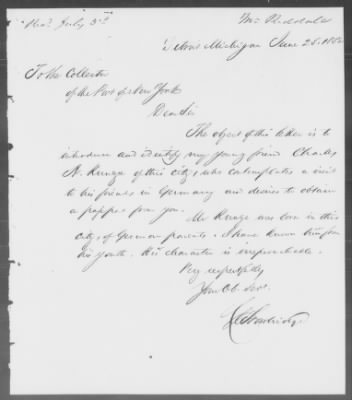 Rec'd July 3rd
Detroit Michigan June 28. 1862
To the Collector
of the Port of New York
Dear Sir
The object of this letter is to
introduce and identify my young friend Charles
N. Runge of this city, who contemplates a visit
to his friends in Germany and desires to obtain
a passport from you.
Mr Runge was born in this
city, of German parents. I have known him from
his youth. His character is irreproachable.
Very respectfully
Your Ob. Servt.
C C Trowbridge